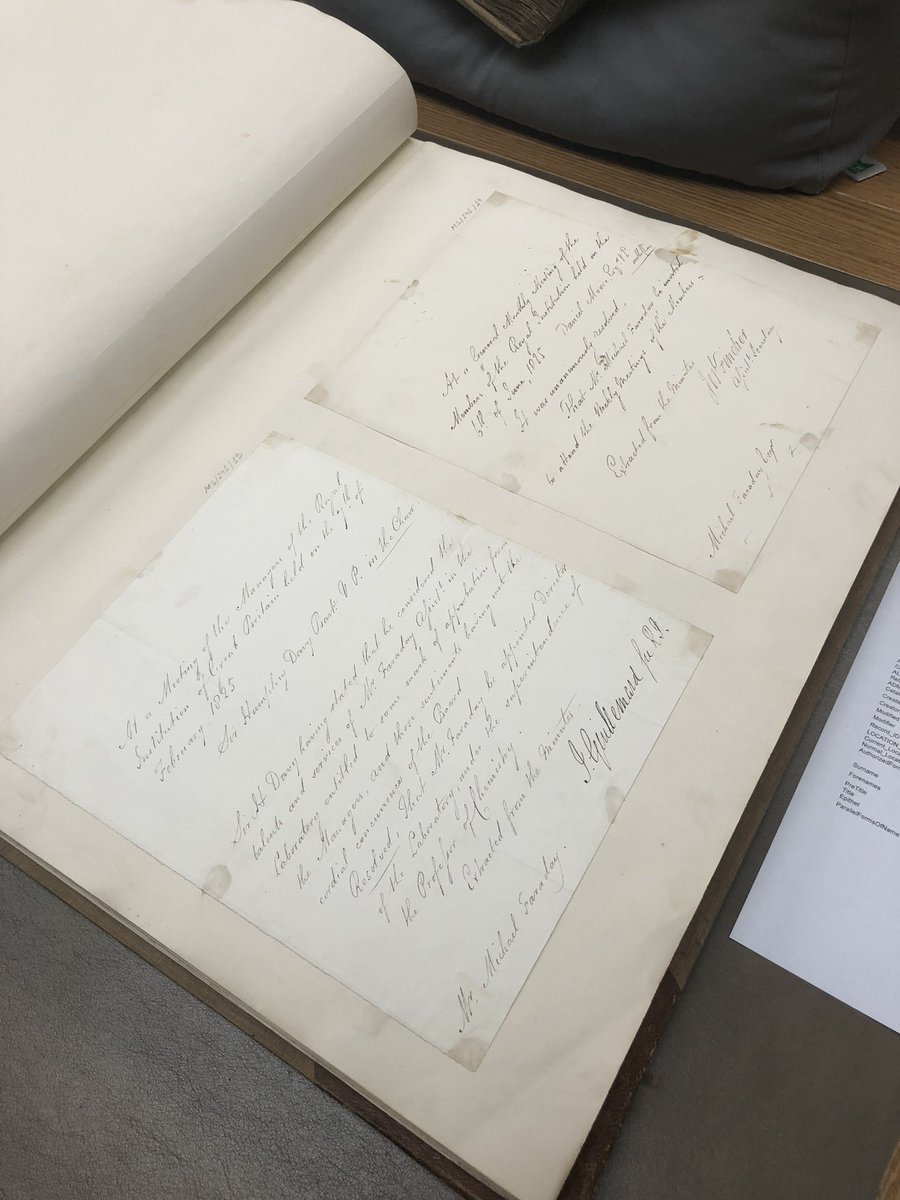 MS/242/14
At a General Monthly Meeting of the
Members of the Royal Institution held on the
6th of June 1825 Daniel Moore Esq VP
It was unanimously resolved,
That Mr. Michael Faraday be invited
to attend the Weekly Meetings of the Members
Extracted from the Minutes
Michael Faraday Esqr
MS/242/15
At a Meeting of the Managers of the Royal
Institution of Great Britain held on the 7th of
February 1825
Sir Humphry Davy Bart. V.P. in the Chair
Sir H Davy having stated that he considered the
talents and services of Mr Faraday Assist. in the
Laboratory entitled to some mark of approbation from
the Managers, and these sentiments having met the
cordial concurrence of the Board
Resolved, That Mr. Faraday be appointed Director
of the Laboratory, under the superintendance of
the Professor of Chemistry
Extracted from the Minutes.
Mr. Michael Faraday.
Modified
Modifier
Record_ID
Surname
Forenames
PreTitle
Title
Epithet
ParallelFormsOfName